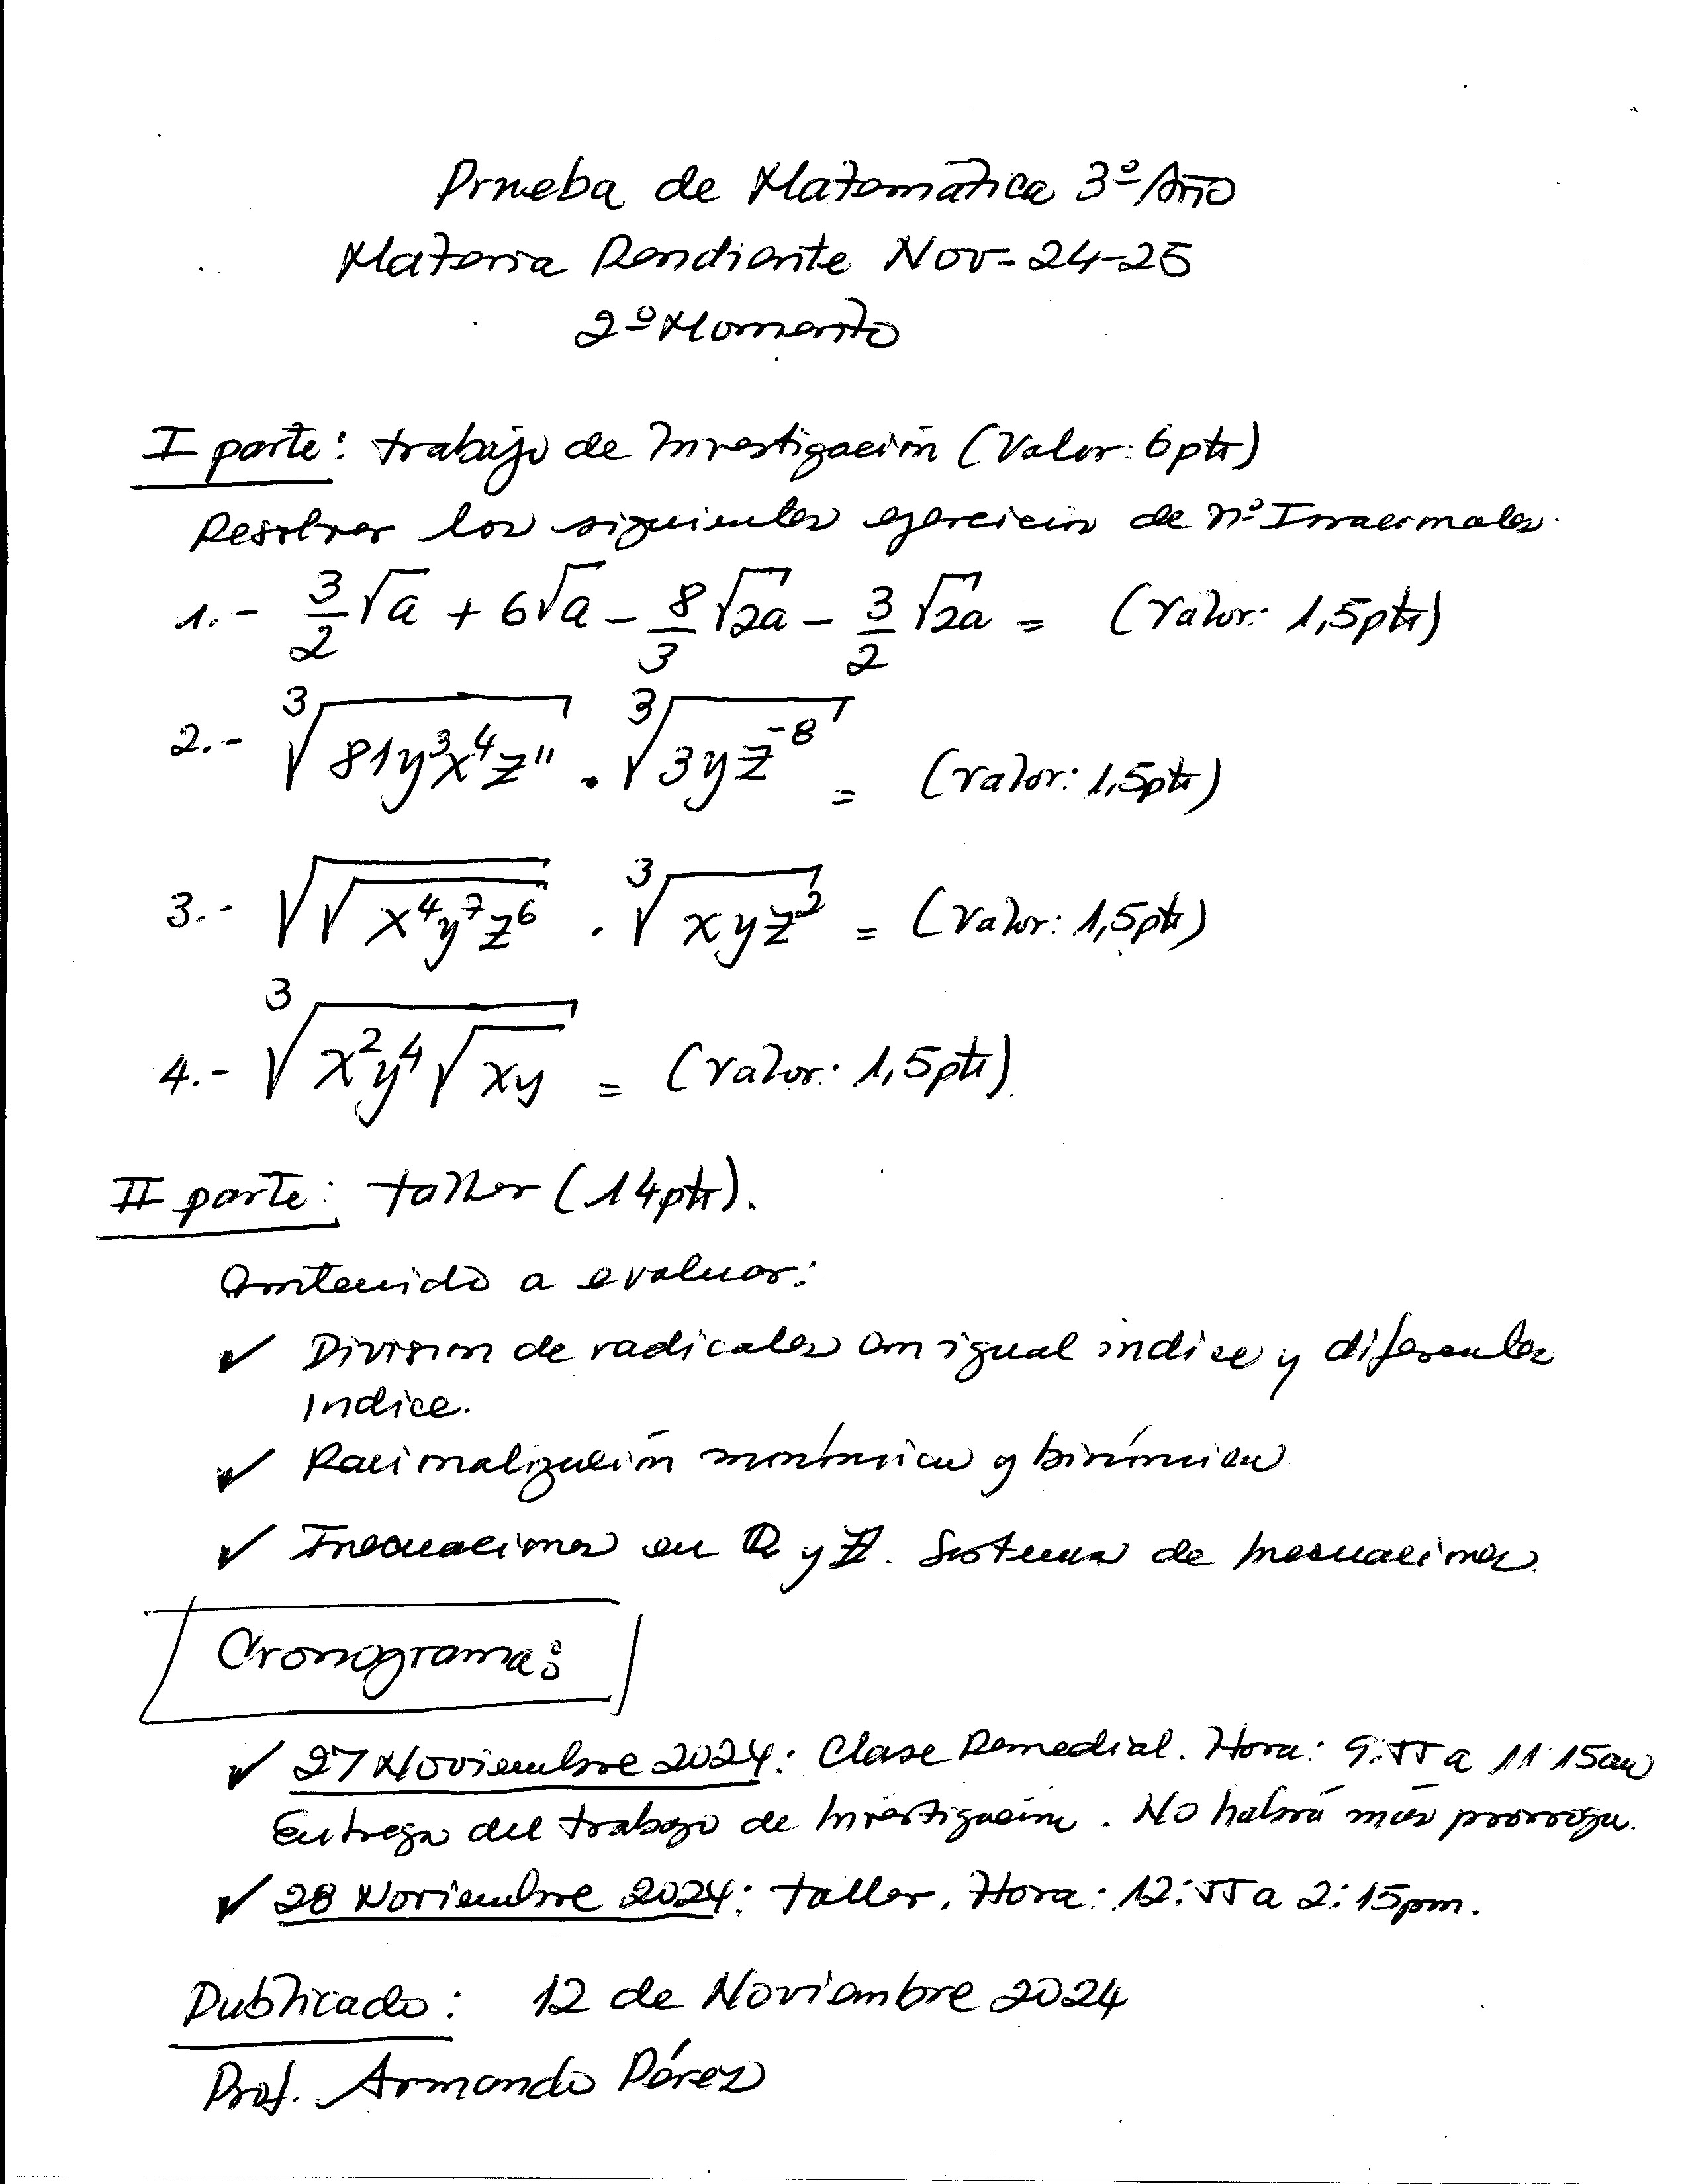 Prueba de Matemática 3º Año
Materia Pendiente Nov-24-25
2º Momento
I parte: trabajo de Investigación (Valor: 6pts)
Resolver los siguientes ejercicios de nº Irracionales.
1.- 3/2 √a + 6√a - 8/3 √2a - 3/2 √2a = (Valor: 1,5pts)
2.- ³√(81y³x⁴z¹¹) . ³√(3yz⁻⁸) = (Valor: 1,5pts)
3.- √√(x⁴y⁷z⁶) . ³√(xyz²) = (Valor: 1,5pts)
4.- ³√(x²y⁴√(xy)) = (Valor: 1,5pts).
II parte: taller (14pts).
Contenido a evaluar:
✓ Division de radicales con igual indice y diferentes
Indice.
✓ Racionalización monómica y binómica
✓ Inecuaciones en Q y Z. Sistema de Inecuaciones.
Cronograma:
✓ 27 Noviembre 2024: Clase Remedial. Hora: 9:55 a 11:15am
Entrega del trabajo de Investigación. No habrá más prorroga.
✓ 28 Noviembre 2024: taller. Hora: 12:55 a 2:15pm.
Publicado: 12 de Noviembre 2024
Prof. Armando Pérez